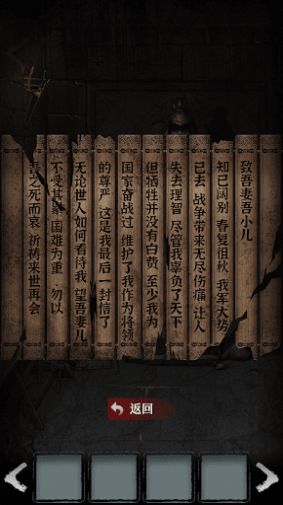 致吾妻吾小儿
知己阔别 春复徂秋 我军大势
已去 战争带来无尽伤痛 让人
失去理智 尽管我辜负了天下
但牺牲并没有白费 至少我为
国家奋战过 维护了我作为将领
的尊严 这是我最后一封信了
无论世人如何看待我 望吾妻儿
不受其累 国难为重 勿以
吾之死而哀 祈祷来世再会
返回